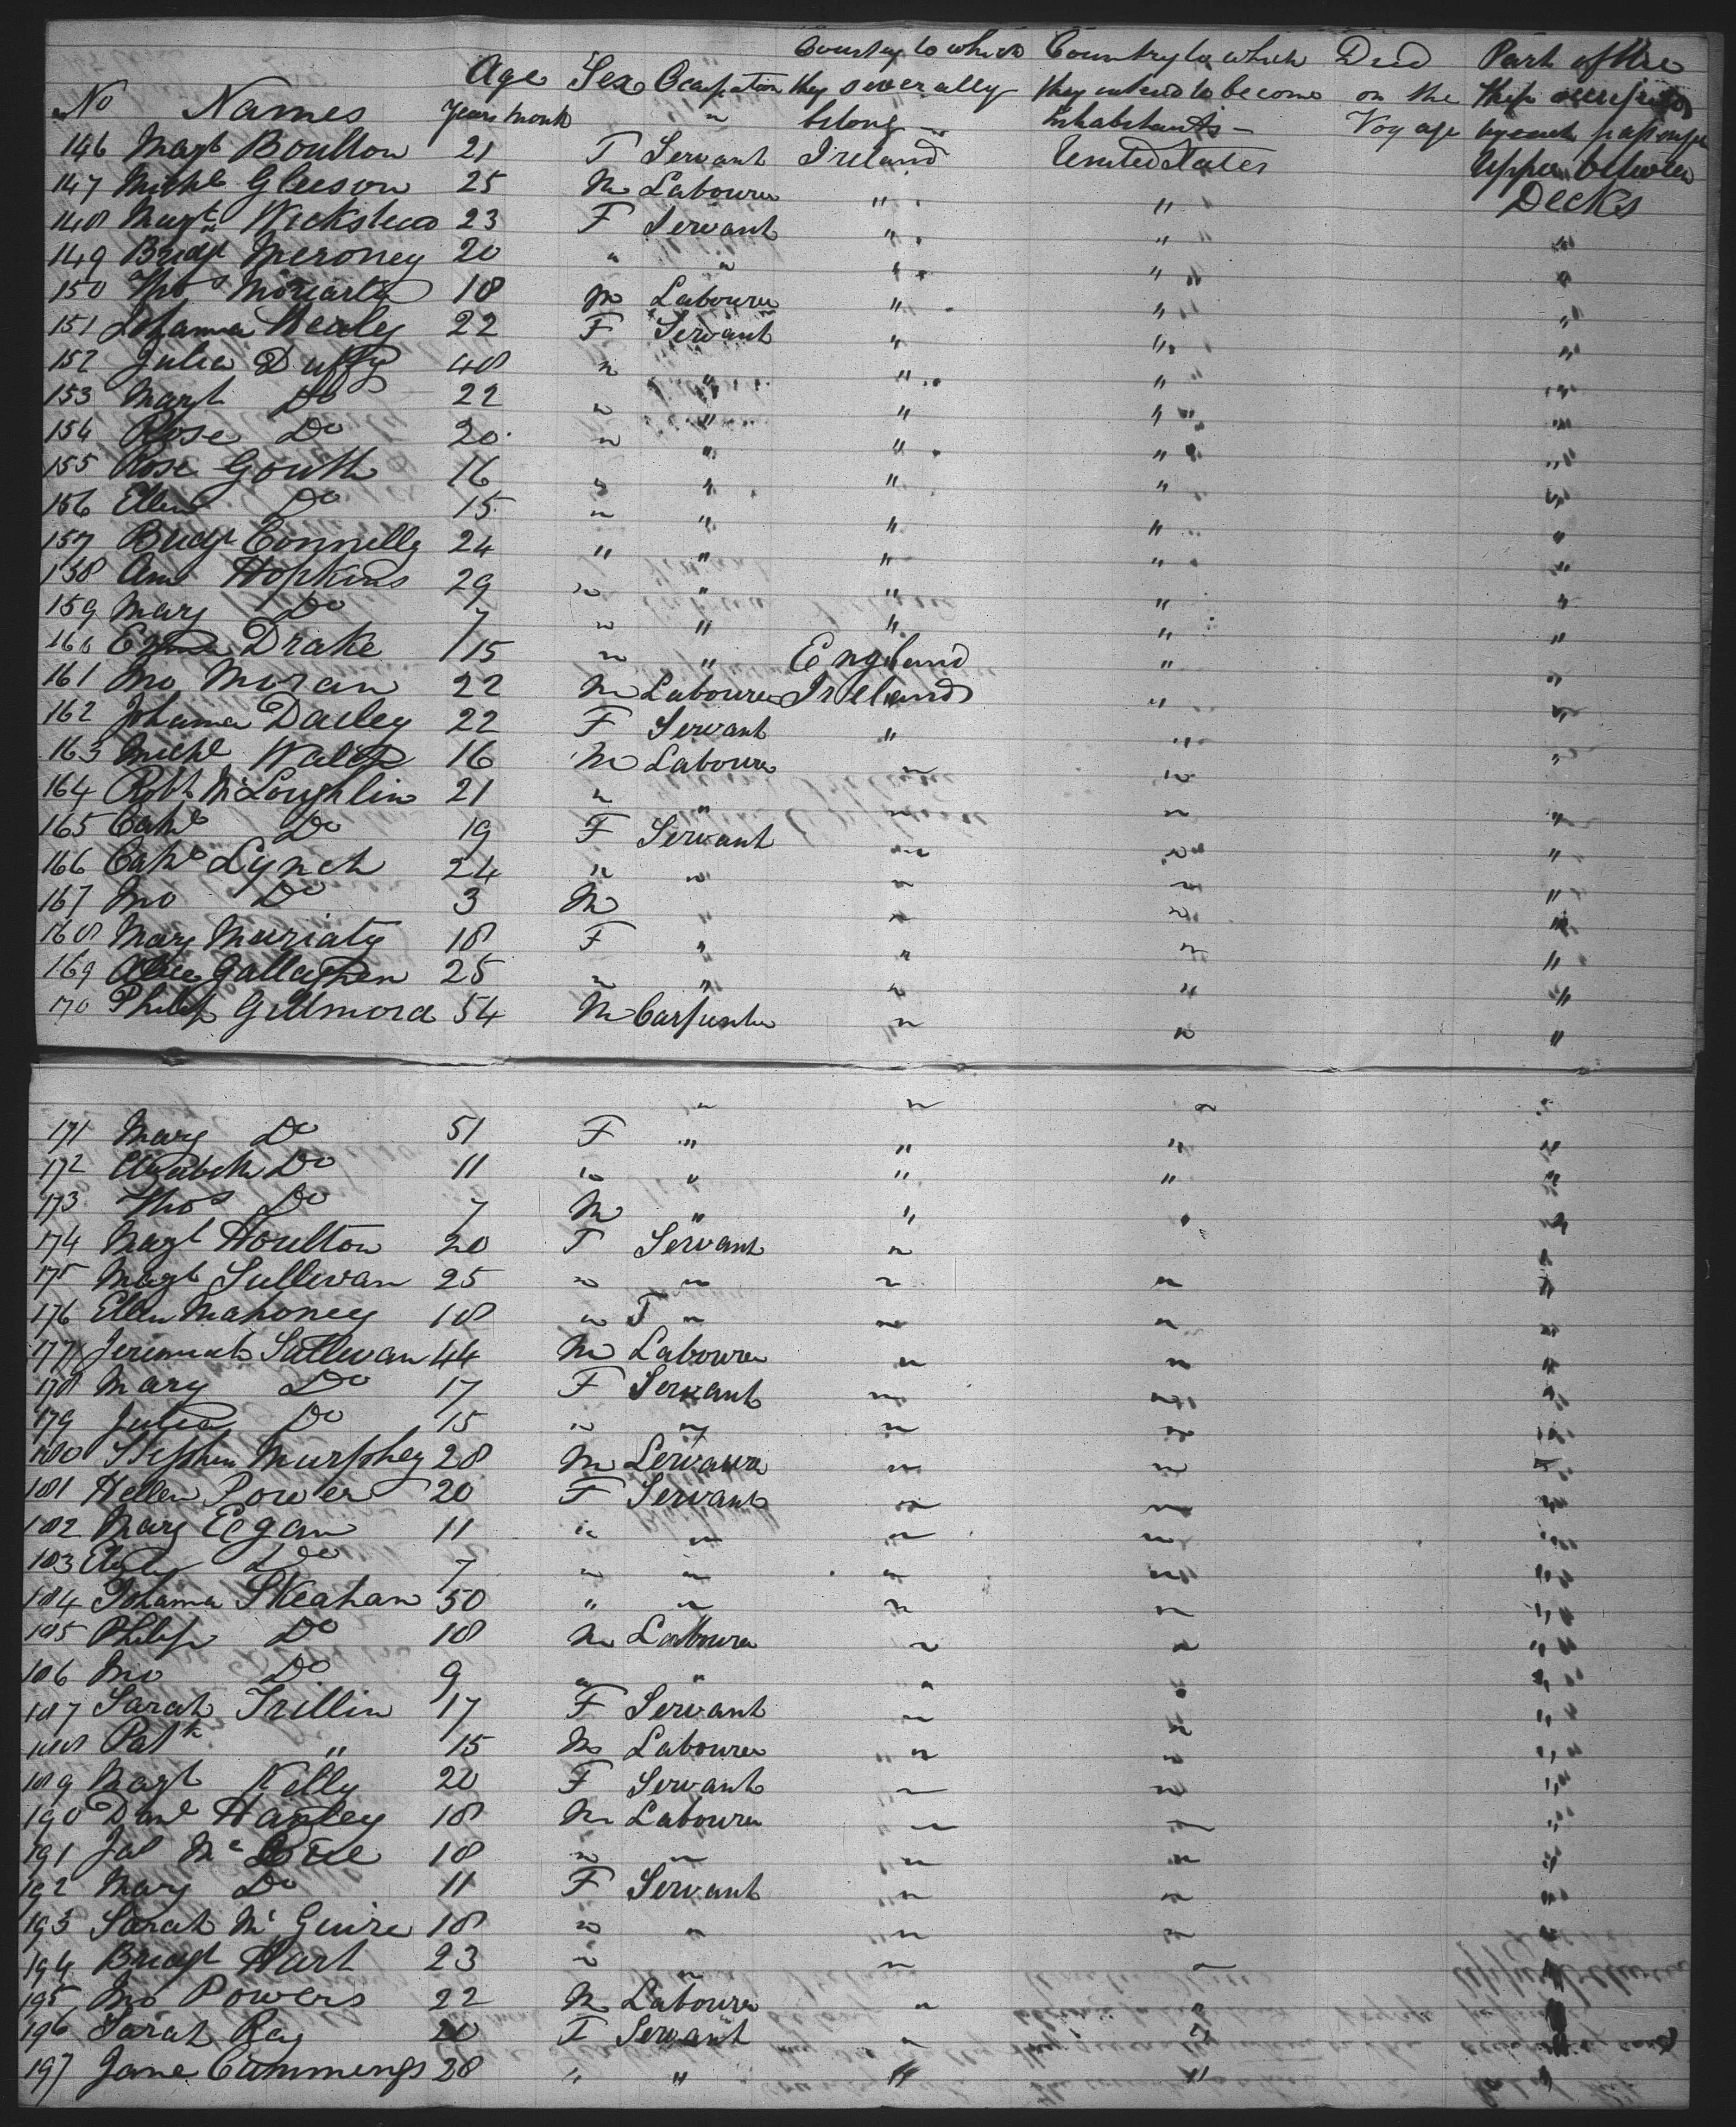 No Names Age Years Months Sex Occupation Country to which they severally belong Country to which they intend to become Inhabitants Died on the Voyage Part of the Ship occupied by each passenger
146 Margt Boulton 21 F Servant Ireland United States Upper between
147 Michl Gleeson 25 M Labourer " " Decks
148 Margt Wickstead 23 F Servant " " "
149 Bridgt Meroney 20 " " " " "
150 Thos Moriarty 18 M Labourer " " "
151 Johanna Healey 22 F Servant " " "
152 Julia Duffy 48 " " " " "
153 Margt Do 22 " " " " "
154 Rose Do 20 " " " " "
155 Rose Gouth 16 " " " " "
156 Ellen Do 15 " " " " "
157 Bridgt Connelly 24 " " " " "
158 Ann Hopkins 29 " " " " "
159 Mary Do 7 " " " " "
160 Emma Drake 15 " " England " "
161 Jno Moran 22 M Labourer Ireland " "
162 Johanna Dailey 22 F Servant " " "
163 Michl Walsh 16 M Labourer " " "
164 Robt McLoughlin 21 " " " " "
165 Cathe Do 19 F Servant " " "
166 Cathe Lynch 24 " " " " "
167 Jno Do 3 M " " " "
168 Mary Muriaty 18 F " " " "
169 Alice Gallaghen 25 " " " " "
170 Philip Gillmord 54 M Carpenter " " "
" " " "
171 Mary Do 51 F " " " "
172 Elizabeth Do 11 " " " " "
173 Thos Do 7 M " " " "
174 Margt Houlton 20 F Servant " "
175 Margt Sullivan 25 " " " " "
176 Ellen Mahoney 18 " F " " " "
177 Jeremiah Sullivan 44 M Labourer " " "
178 Mary Do 17 F Servant " " "
179 Julia Do 15 " " " " "
180 Stephen Murphey 28 M " " "
181 Hellen Power 20 F Servant " " "
182 Mary Egan 11 " " " " "
183 Do 7 " " " " "
184 Johanna Skeahan 50 " " " " "
185 Philip Do 18 M Labourer " " "
186 Jno Do 9 " " " " "
187 Sarah Trillin 17 F Servant " " "
188 Patk " 15 M Labourer " " "
189 Margt Kelly 20 F Servant " " "
190 Danl Hanley 18 M Labourer " " "
191 Jas Mc 18 " " " " "
192 Mary Do 11 F Servant " " "
193 Sarah Mc Guire 18 " " " " "
194 Bridgt Hart 23 " " " " "
195 Jno Powers 22 M Labourer " " "
196 Sarah Ray 20 F Servant " " "
197 Jane Cummings 28 " " " " "